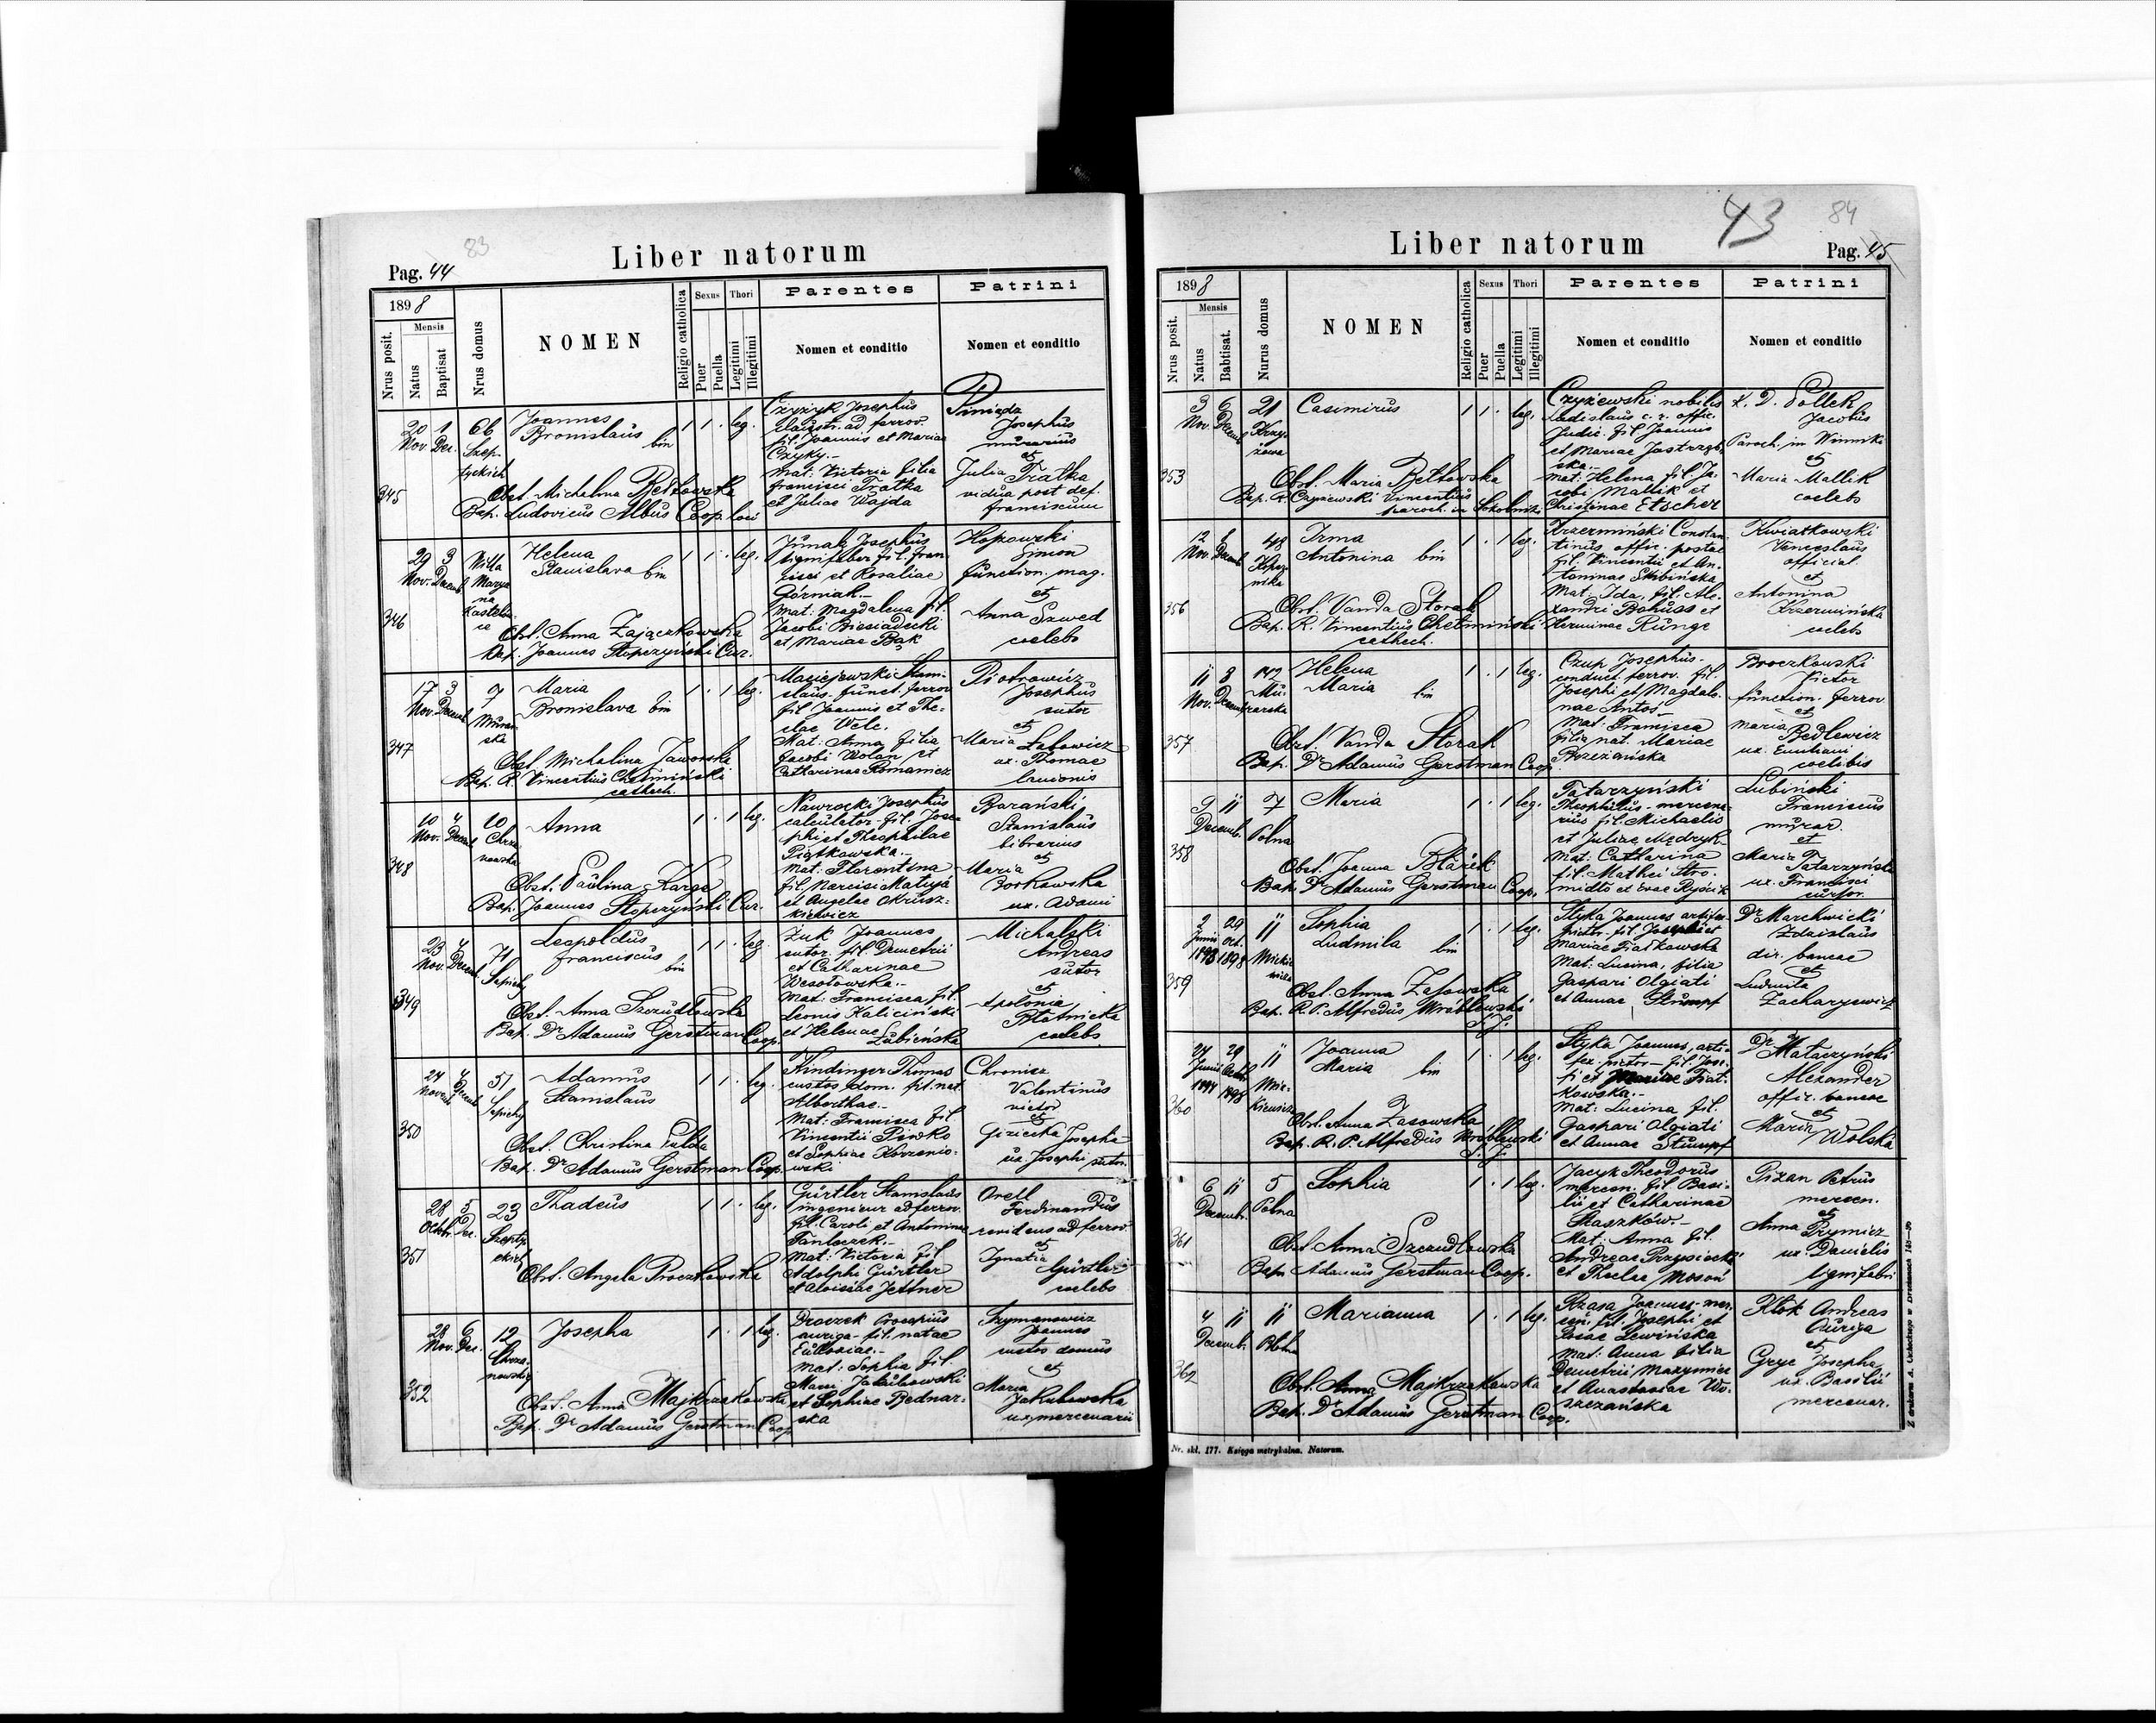 83
Liber natorum
Pag. 44
1898
Nrus posit.
Mensis
Natus
Baptisat
Nrus domus
NOMEN
Religio catholica
Sexus
Puer
Puella
Thori
Legitimi
Illegitimi
Parentes
Nomen et conditio
Patrini
Nomen et conditio
345
20 Nov.
1 Dec.
66
Szep-
tyckich
Joannes
Bronislaus
bin
1 1 . leg.
Czyżyk Josephus
ad ferrov.
fil. Joannis et Mariae
Czyky.-
Mat: Victoria filia
Francisci Tratka
et Juliae Wajda
Piniądz
Josephus
murarius
et
Julia Tratka
vidua post def.
Franciscum
Obst. Michalina Bełkowska
Bap. Ludovicus Albus Coop. loci
346
29 Nov.
3 Decemb
Willa
Marya
na
Helena
Stanislava bin
1 . 1 leg.
Junak Josephus
lignifaber fil. Fran-
cisci et Rosaliae
Górniak.-
Mat: Magdalena fil.
Jacobi Biesiadecki
et Mariae Bąk
Kopowski
Simon
function. mag.
et
Anna Szwed
coelebs
Obst. Anna Zajączkowska
Bap. Joannes Stopczyński Cur.
347
17 Nov.
3 Decemb
7
Murar-
ska
Maria
Bronislava bin
1 . 1 leg.
Maciejewski Stani-
slaus funct. ferrov
fil Joannis et The-
clae Welc.
Mat: Anna filia
Jacobi Wolan et
Catharinae Romanicz
Piotrowicz
Josephus
sutor
et
Maria Łabowicz
ux. Thomae
Obst. Michalina Jaworska
Bap. R. Vincentius Chełmiński
cathech.
348
10 Nov.
4 Decemb
10
Chrza
nowska
Anna
1 . 1 leg.
Nawrocki Josephus
calculator fil. Jose-
phi et Theophilae
Piątkowska.-
Mat: Florentina
fil. Narcisi Matuja
et Angelae Okrusz-
kiewicz
Barański
Stanislaus
librarius
et
Maria
Borkowska
ux. Adami
Obst. Paulina Karge
Bap. Joannes Stopczyński Cur.
349
23 Nov.
4 Decemb.
71
Sapiehy
Leopoldus
Franciscus
bin
1 1 . leg.
Żuk Joannes
sutor fil. Demetrii
et Catharinae
Wesołowska.-
Mat: Francisca fil.
Leonis Kaliciński
et Helenae Łubieńska
Michalski
Andreas
sutor
et
Apolonia
Błotnicka
coelebs
Obst. Anna Szczudłowska
Bap. Dr Adamus Gerstman Coop.
350
24 Novemb
4 Decemb
51
Sapiehy
Adamus
Stanislaus
1 1 . leg.
Kindinger Thomas
custos dom. fil. nat.
Alberthae.-
Mat: Francisca fil
Vincentii Pińko
et Sophiae Korzenio-
wski
Chronisz
Valentinus
victor
et
Gizicka Josepha
ux. Josephi sutor.
Obst. Christina Fulda
Bap. Dr Adamus Gerstman Coop.
351
28 Octobr
5 Dec.
23
Szepty
ckich
Thadeus
1 1 . leg.
Gürtler Stanislaus
ingenieur ad ferrov.
fil. Caroli et Antoninae
Mat: Victoria fil
Adolphi Gürtler
et Aloisiae Jettner
Orell
Ferdinandus
revidens ad ferrov
et
Ignatia
Gürtler
coelebs
Obst. Angela Proczkowska
352
28 Nov.
6 Dec.
12
Chrza-
nowskiej
Josepha
1 . 1 leg.
Droczek Procopius
auriga fil. natae
Eudosiae.-
Mat: Sophia fil.
Jakubowski
et Sophiae Bednar-
ska
Szymonowicz
Joannes
custos domus
et
Maria
Jakubowska
ux mercenarii
Obst. Anna Majkrzakowska
Bap. Dr Adamus Gerstman Coop.
43
84
Liber natorum
Pag. 45
1898
Nrus posit.
Mensis
Natus
Babtisat.
Nurus domus
NOMEN
Religio catholica
Sexus
Puer
Puella
Thori
Legitimi
Illegitimi
Parentes
Nomen et conditio
Patrini
Nomen et conditio
353
3 Nov.
6 Decemb
21
Krzy-
żowa
Casimirus
1 1 . leg.
Czyżewski nobilis
Ladislaus c. r. offic.
judic. fil Joannis
et Mariae Jastrzęb
ska.-
Mat: Helena fil Ja-
cobi Mallik et
Christinae Etscher
X. D. Pollek
Jacobus
Paroch. in Winniki
et
Maria Mallik
coelebs
Obst. Maria Bełtowska
Bap. R. Czyżewski Vincentius
paroch. in Sokolniki
356
12 Nov.
Decemb
48
Koper
nika
Irma
Antonina bin
1 . 1 leg.
Krzermiński Constan-
tinus offic. postae
fil. Vincentii et An-
toninae Skibińska
Mat: Ida, fil. Ale-
xandri Bohuss et
Herminae Runge
Kwiatkowski
Venceslaus
official.
et
Antonina
Krzermińska
coelebs
Obst. Vanda Storak
Bap. R. Vincentius Chełmiński
cathech.
357
11 Nov.
8 Decemb
Mu-
rarska
Helena
Maria bin
1 . 1 leg.
Czup Josephus-
conduct ferrov. fil.
Josephi et Magdale-
nae Antoś
Mat: Francisca
filia nat. Mariae
Brzezańska
Broczkowski
Victor
function. ferrov
et
Maria Bedlewicz
ux.
coelibis
Obst. Vanda Storak
Bap. Dr Adamus Gerstman Coop.
358
9 Decemb.
11
7
Polna
Maria
1 . 1 leg.
Tatarzyński
Theophilus-mercena-
rius fil. Michaelis
et Juliae Mędryk
Mat: Catharina
fil. Mathei Stro-
midło et Evae Ryścik
Lubiński
Franciscus
murar.
et
Maria Tatarzyńska
ux. Francisci
Obst. Joanna Błażek
Bap. Dr Adamus Gerstman Coop.
359
2 Junii 1893
29 Oct. 1898
11
Mickie
wicza
Sophia
Ludmila bin
1 . 1 leg.
Styka Joannes artifex-
pictor. fil. Josephi et
Mariae Fiałkowska
Mat: Lucina, filia
Gaspari Olgiati
et Annae Stumpf
Dr Marchwicki
Zdzislaus
dir. bancae
et
Ludmila
Zacharyewicz
Obst. Anna Zasowska
Bap. R. P. Alfredus Wróblewski
S. J.
360
24 Junii
29 Octob
1898
11
Mic-
kiewicza
Joanna
Maria bin
1 . 1 leg.
Styka Joannes, arti-
fex pictor- fil Jose-
fi et Mariae Fiał-
kowska.-
Mat: Lucina fil.
Gaspari Olgiati
et Annae Stumpf
Dr Małaczyński
Alexander
offic. bancae
et
Maria Wolska
Obst. Anna Zasowska
Bap. R. P. Alfredus Wróblewski
S. J.
361
6 Decemb.
11
5
Polna
Sophia
1 . 1 leg.
Jacyk Theodorus
mercen. fil. Basi-
lii et Catharinae
Staszków.-
Mat: Anna fil.
Andreae Przysiecki
et Theclae Mosoń
Pizan Petrus
mercen.
et
Anna Prymicz
ux. Danielis
lignifabri
Obst. Anna Szczudłowska
Bap. Adamus Gerstman Coop.
362
4 Decemb.
11
11
Błotna
Marianna
1 . 1 leg.
Rzasa Joannes-mer-
cen. fil. Josephi et
Rosae Lewińska
Mat: Anna filia
Demetrii Maxymicz
et Anastasiae Wo-
szczańska
Kłok Andreas
Auriga
et
Gryc Josepha
ux. Basilii
mercenar.
Obst. Anna Majkrzakowska
Bap. Dr Adamus Gerstman Coop.
Nr. skł. 177. Księga metrykalna. Natorum.